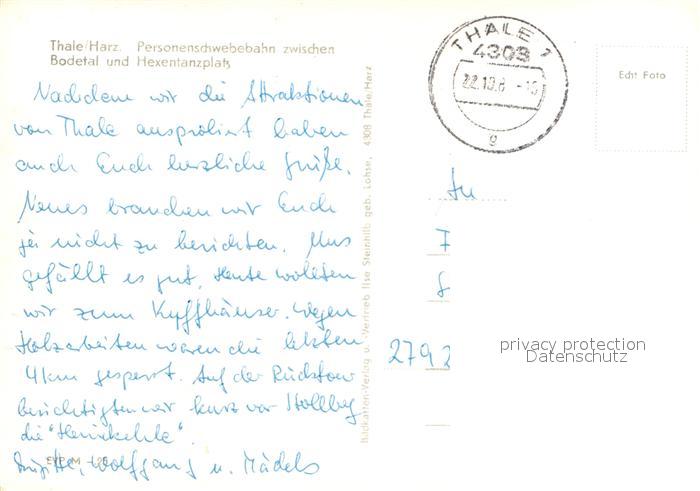 Thale/Harz. Personenschwebebahn zwischen
Bodetal und Hexentanzplatz
Nachdem wir die Attraktionen
von Thale ausprobiert haben
auch Euch herzliche Grüße.
Neues brauchen wir Euch
ja nicht zu berichten. Uns
gefällt es gut. Heute wollten
wir zum Kyffhäuser. Wegen
Holzarbeiten waren die letzten
4km gesperrt. Auf der Rücktour
besichtigten wir kurz vor Stollbg
die "Heimkehle".
Brigitte, Wolfgang u. Mädels
Bildkarten-Verlag u. Vertrieb Ilse Steinhilb geb. Lohse, 4308 Thale/Harz
THALE 1
4308
22.10.8 -16
g
Echt Foto
An
2792
privacy protection
Datenschutz